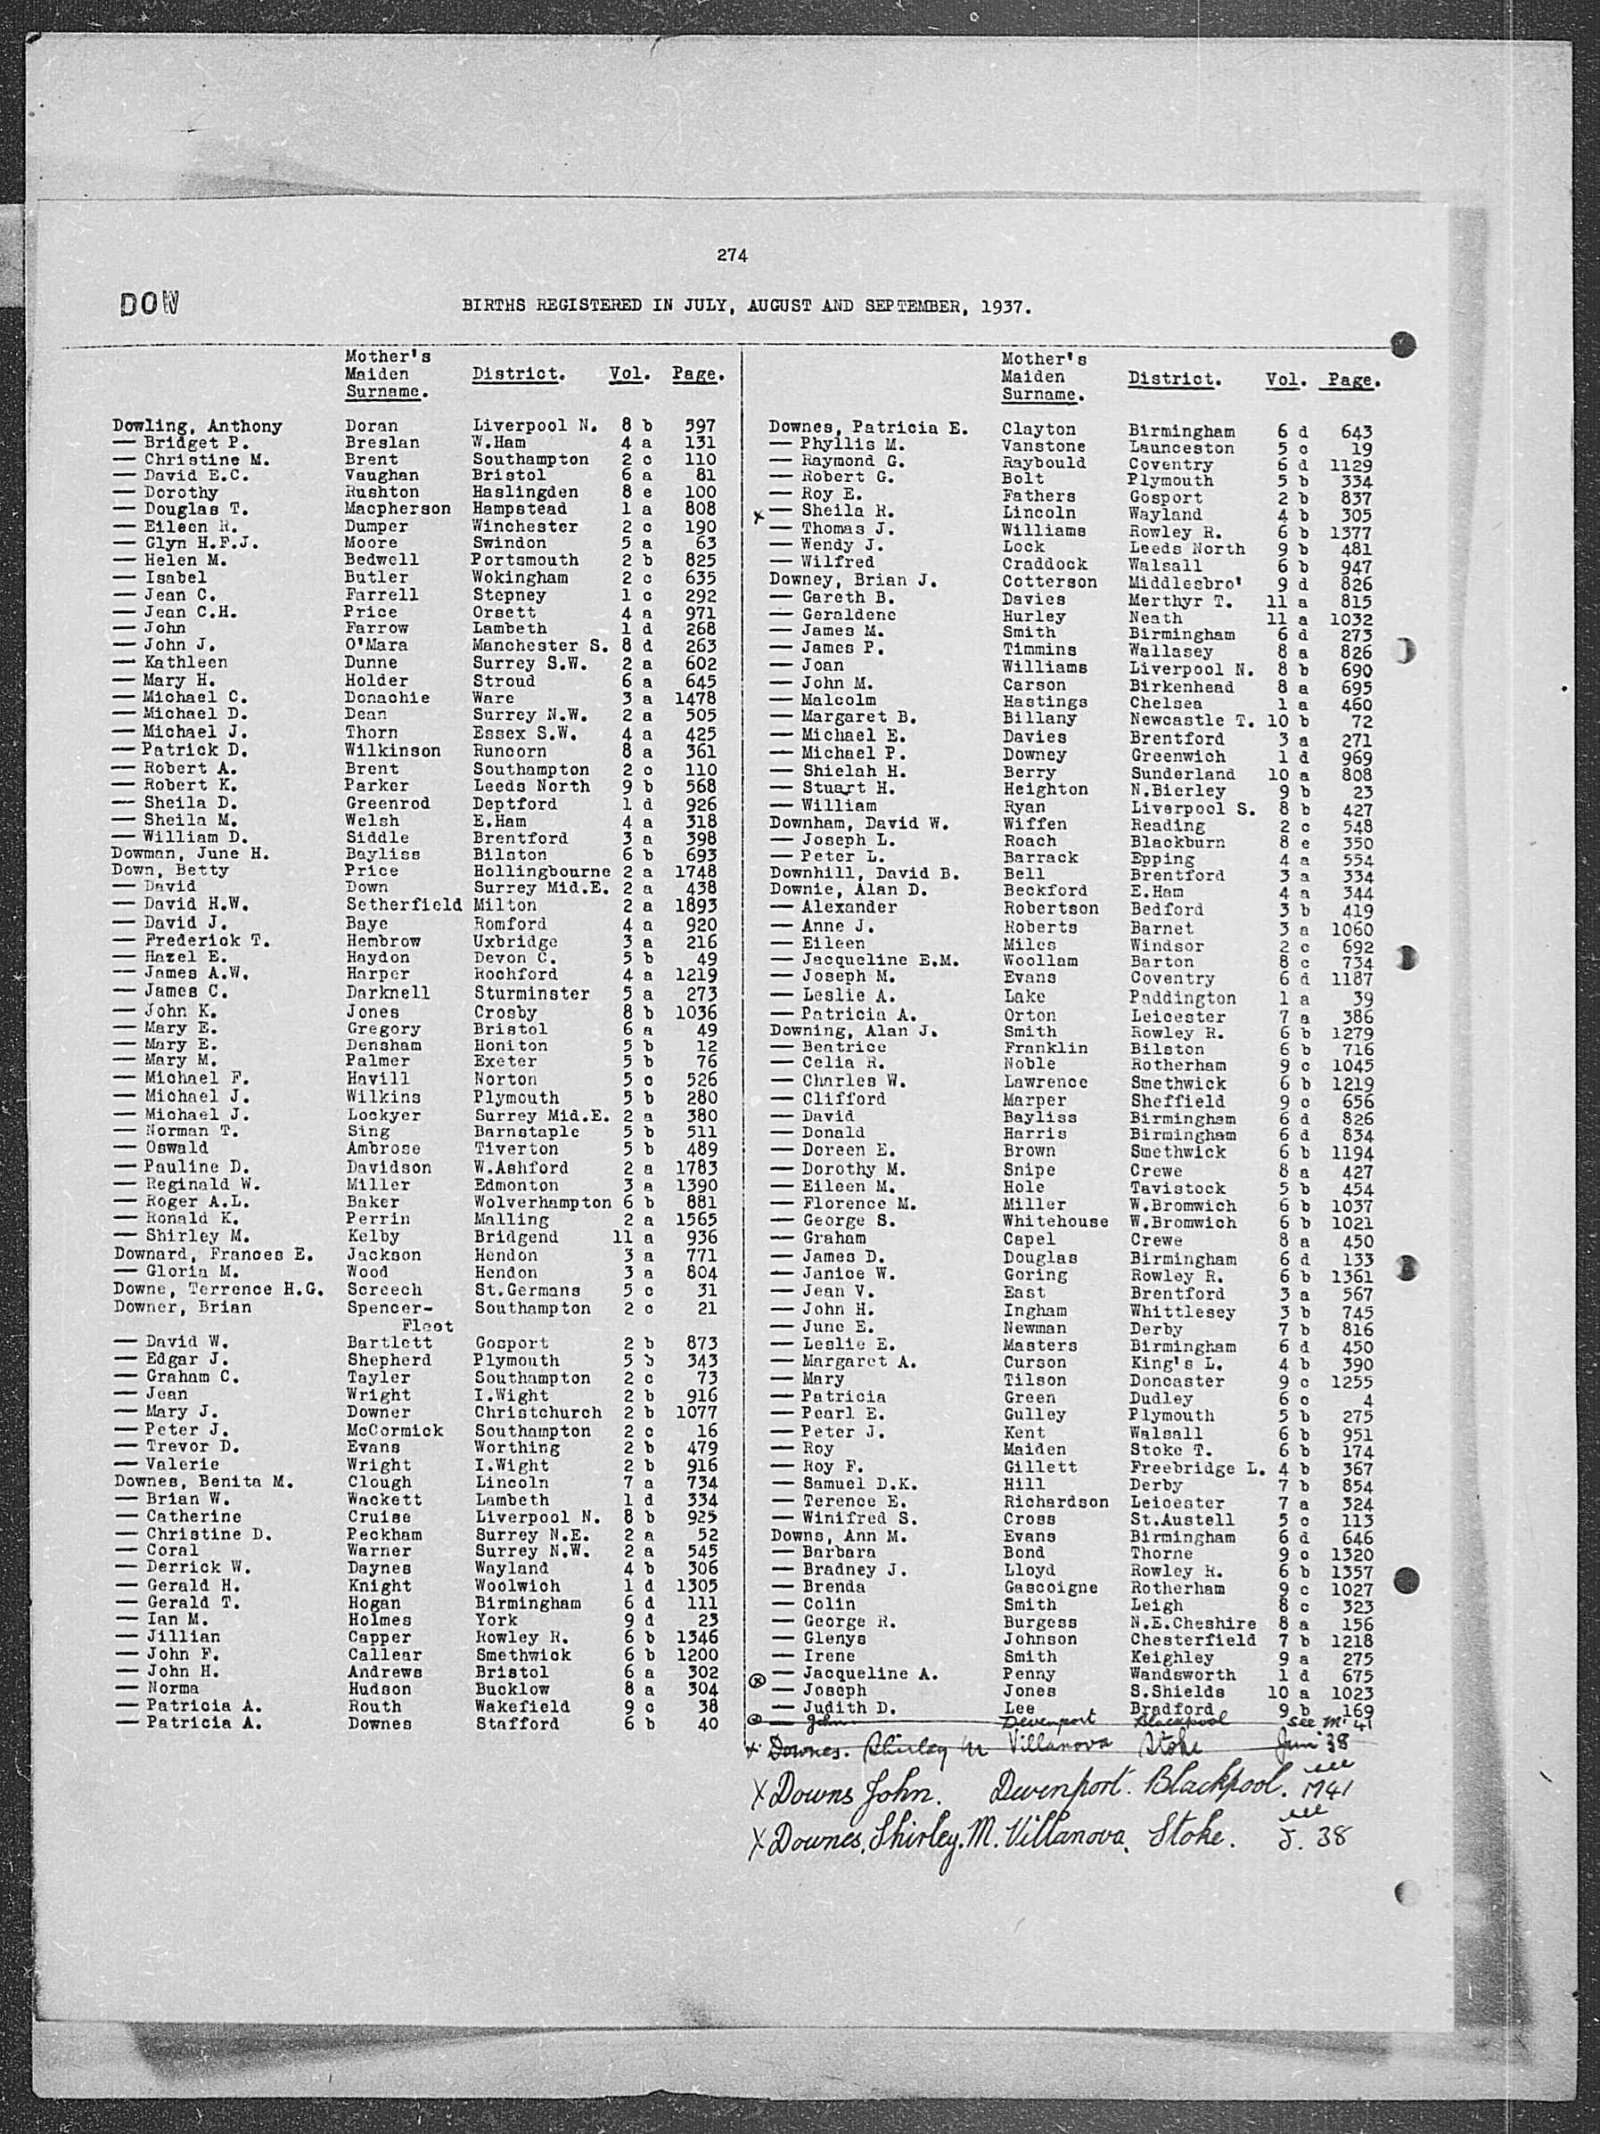 274
DOW
BIRTHS REGISTERED IN JULY, AUGUST AND SEPTEMBER, 1937.
Mother's Maiden Surname. District. Vol. Page.
Dowling, Anthony Doran Liverpool N. 8 b 597
— Bridget P. Breslan W.Ham 4 a 131
— Christine M. Brent Southampton 2 c 110
— David E.C. Vaughan Bristol 6 a 81
— Dorothy Rushton Haslingden 8 e 100
— Douglas T. Macpherson Hampstead 1 a 808
— Eileen R. Dumper Winchester 2 c 190
— Glyn H.F.J. Moore Swindon 5 a 63
— Helen M. Bedwell Portsmouth 2 b 825
— Isabel Butler Wokingham 2 c 635
— Jean C. Farrell Stepney 1 c 292
— Jean C.H. Price Orsett 4 a 971
— John Farrow Lambeth 1 d 268
— John J. O'Mara Manchester S. 8 d 263
— Kathleen Dunne Surrey S.W. 2 a 602
— Mary H. Holder Stroud 6 a 645
— Michael C. Donachie Ware 3 a 1478
— Michael D. Dean Surrey N.W. 2 a 505
— Michael J. Thorn Essex S.W. 4 a 425
— Patrick D. Wilkinson Runcorn 8 a 361
— Robert A. Brent Southampton 2 c 110
— Robert K. Parker Leeds North 9 b 568
— Sheila D. Greenrod Deptford 1 d 926
— Sheila M. Welsh E.Ham 4 a 318
— William D. Siddle Brentford 3 a 398
Dowman, June H. Bayliss Bilston 6 b 693
Down, Betty Price Hollingbourne 2 a 1748
— David Down Surrey Mid.E. 2 a 438
— David H.W. Setherfield Milton 2 a 1893
— David J. Baye Romford 4 a 920
— Frederick T. Hembrow Uxbridge 3 a 216
— Hazel E. Haydon Devon C. 5 b 49
— James A.W. Harper Rochford 4 a 1219
— James C. Darknell Sturminster 5 a 273
— John K. Jones Crosby 8 b 1036
— Mary E. Gregory Bristol 6 a 49
— Mary E. Densham Honiton 5 b 12
— Mary M. Palmer Exeter 5 b 76
— Michael F. Havill Norton 5 c 526
— Michael J. Wilkins Plymouth 5 b 280
— Michael J. Lockyer Surrey Mid.E. 2 a 380
— Norman T. Sing Barnstaple 5 b 511
— Oswald Ambrose Tiverton 5 b 489
— Pauline D. Davidson W.Ashford 2 a 1783
— Reginald W. Miller Edmonton 3 a 1390
— Roger A.L. Baker Wolverhampton 6 b 881
— Ronald K. Perrin Malling 2 a 1565
— Shirley M. Kelby Bridgend 11 a 936
Downard, Frances E. Jackson Hendon 3 a 771
— Gloria M. Wood Hendon 3 a 804
Downe, Terrence H.G. Screech St.Germans 5 c 31
Downer, Brian Spencer- Southampton 2 c 21
Fleet
— David W. Bartlett Gosport 2 b 873
— Edgar J. Shepherd Plymouth 5 b 343
— Graham C. Tayler Southampton 2 c 73
— Jean Wright I.Wight 2 b 916
— Mary J. Downer Christchurch 2 b 1077
— Peter J. McCormick Southampton 2 c 16
— Trevor D. Evans Worthing 2 b 479
— Valerie Wright I.Wight 2 b 916
Downes, Benita M. Clough Lincoln 7 a 734
— Brian W. Wackett Lambeth 1 d 334
— Catherine Cruise Liverpool N. 8 b 925
— Christine D. Peckham Surrey N.E. 2 a 52
— Coral Warner Surrey N.W. 2 a 545
— Derrick W. Daynes Wayland 4 b 306
— Gerald H. Knight Woolwich 1 d 1305
— Gerald T. Hogan Birmingham 6 d 111
— Ian M. Holmes York 9 d 23
— Jillian Capper Rowley R. 6 b 1346
— John F. Callear Smethwick 6 b 1200
— John H. Andrews Bristol 6 a 302
— Norma Hudson Bucklow 8 a 304
— Patricia A. Routh Wakefield 9 c 38
— Patricia A. Downes Stafford 6 b 40
Mother's Maiden Surname. District. Vol. Page.
Downes, Patricia E. Clayton Birmingham 6 d 643
— Phyllis M. Vanstone Launceston 5 c 19
— Raymond G. Raybould Coventry 6 d 1129
— Robert G. Bolt Plymouth 5 b 334
— Roy E. Fathers Gosport 2 b 837
x — Sheila R. Lincoln Wayland 4 b 305
— Thomas J. Williams Rowley R. 6 b 1377
— Wendy J. Lock Leeds North 9 b 481
— Wilfred Craddock Walsall 6 b 947
Downey, Brian J. Cotterson Middlesbro' 9 d 826
— Gareth B. Davies Merthyr T. 11 a 815
— Geraldene Hurley Neath 11 a 1032
— James M. Smith Birmingham 6 d 273
— James P. Timmins Wallasey 8 a 826
— Joan Williams Liverpool N. 8 b 690
— John M. Carson Birkenhead 8 a 695
— Malcolm Hastings Chelsea 1 a 460
— Margaret B. Billany Newcastle T. 10 b 72
— Michael E. Davies Brentford 3 a 271
— Michael P. Downey Greenwich 1 d 969
— Shielah H. Berry Sunderland 10 a 808
— Stuart H. Heighton N.Bierley 9 b 23
— William Ryan Liverpool S. 8 b 427
Downham, David W. Wiffen Reading 2 c 548
— Joseph L. Roach Blackburn 8 e 350
— Peter L. Barrack Epping 4 a 554
Downhill, David B. Bell Brentford 3 a 334
Downie, Alan D. Beckford E.Ham 4 a 344
— Alexander Robertson Bedford 3 b 419
— Anne J. Roberts Barnet 3 a 1060
— Eileen Miles Windsor 2 c 692
— Jacqueline E.M. Woollam Barton 8 c 734
— Joseph M. Evans Coventry 6 d 1187
— Leslie A. Lake Paddington 1 a 39
— Patricia A. Orton Leicester 7 a 386
Downing, Alan J. Smith Rowley R. 6 b 1279
— Beatrice Franklin Bilston 6 b 716
— Celia R. Noble Rotherham 9 c 1045
— Charles W. Lawrence Smethwick 6 b 1219
— Clifford Marper Sheffield 9 c 656
— David Bayliss Birmingham 6 d 826
— Donald Harris Birmingham 6 d 834
— Doreen E. Brown Smethwick 6 b 1194
— Dorothy M. Snipe Crewe 8 a 427
— Eileen M. Hole Tavistock 5 b 454
— Florence M. Miller W.Bromwich 6 b 1037
— George S. Whitehouse W.Bromwich 6 b 1021
— Graham Capel Crewe 8 a 450
— James D. Douglas Birmingham 6 d 133
— Janice W. Goring Rowley R. 6 b 1361
— Jean V. East Brentford 3 a 567
— John H. Ingham Whittlesey 3 b 745
— June E. Newman Derby 7 b 816
— Leslie E. Masters Birmingham 6 d 450
— Margaret A. Curson King's L. 4 b 390
— Mary Tilson Doncaster 9 c 1255
— Patricia Green Dudley 6 c 4
— Pearl E. Gulley Plymouth 5 b 275
— Peter J. Kent Walsall 6 b 951
— Roy Maiden Stoke T. 6 b 174
— Roy F. Gillett Freebridge L. 4 b 367
— Samuel D.K. Hill Derby 7 b 854
— Terence E. Richardson Leicester 7 a 324
— Winifred S. Cross St.Austell 5 c 113
Downs, Ann M. Evans Birmingham 6 d 646
— Barbara Bond Thorne 9 c 1320
— Bradney J. Lloyd Rowley R. 6 b 1357
— Brenda Gascoigne Rotherham 9 c 1027
— Colin Smith Leigh 8 c 323
— George R. Burgess N.E.Cheshire 8 a 156
— Glenys Johnson Chesterfield 7 b 1218
— Irene Smith Keighley 9 a 275
— Jacqueline A. Penny Wandsworth 1 d 675
— Joseph Jones S.Shields 10 a 1023
— Judith D. Lee Bradford 9 b 169
— John Devenport Blackpool see M. 41
x Downes. Shirley M Villanova Stoke Jun 38
X Downs John. Devenport. Blackpool. see M41
X Downes, Shirley. M. Villanova. Stoke. see J. 38